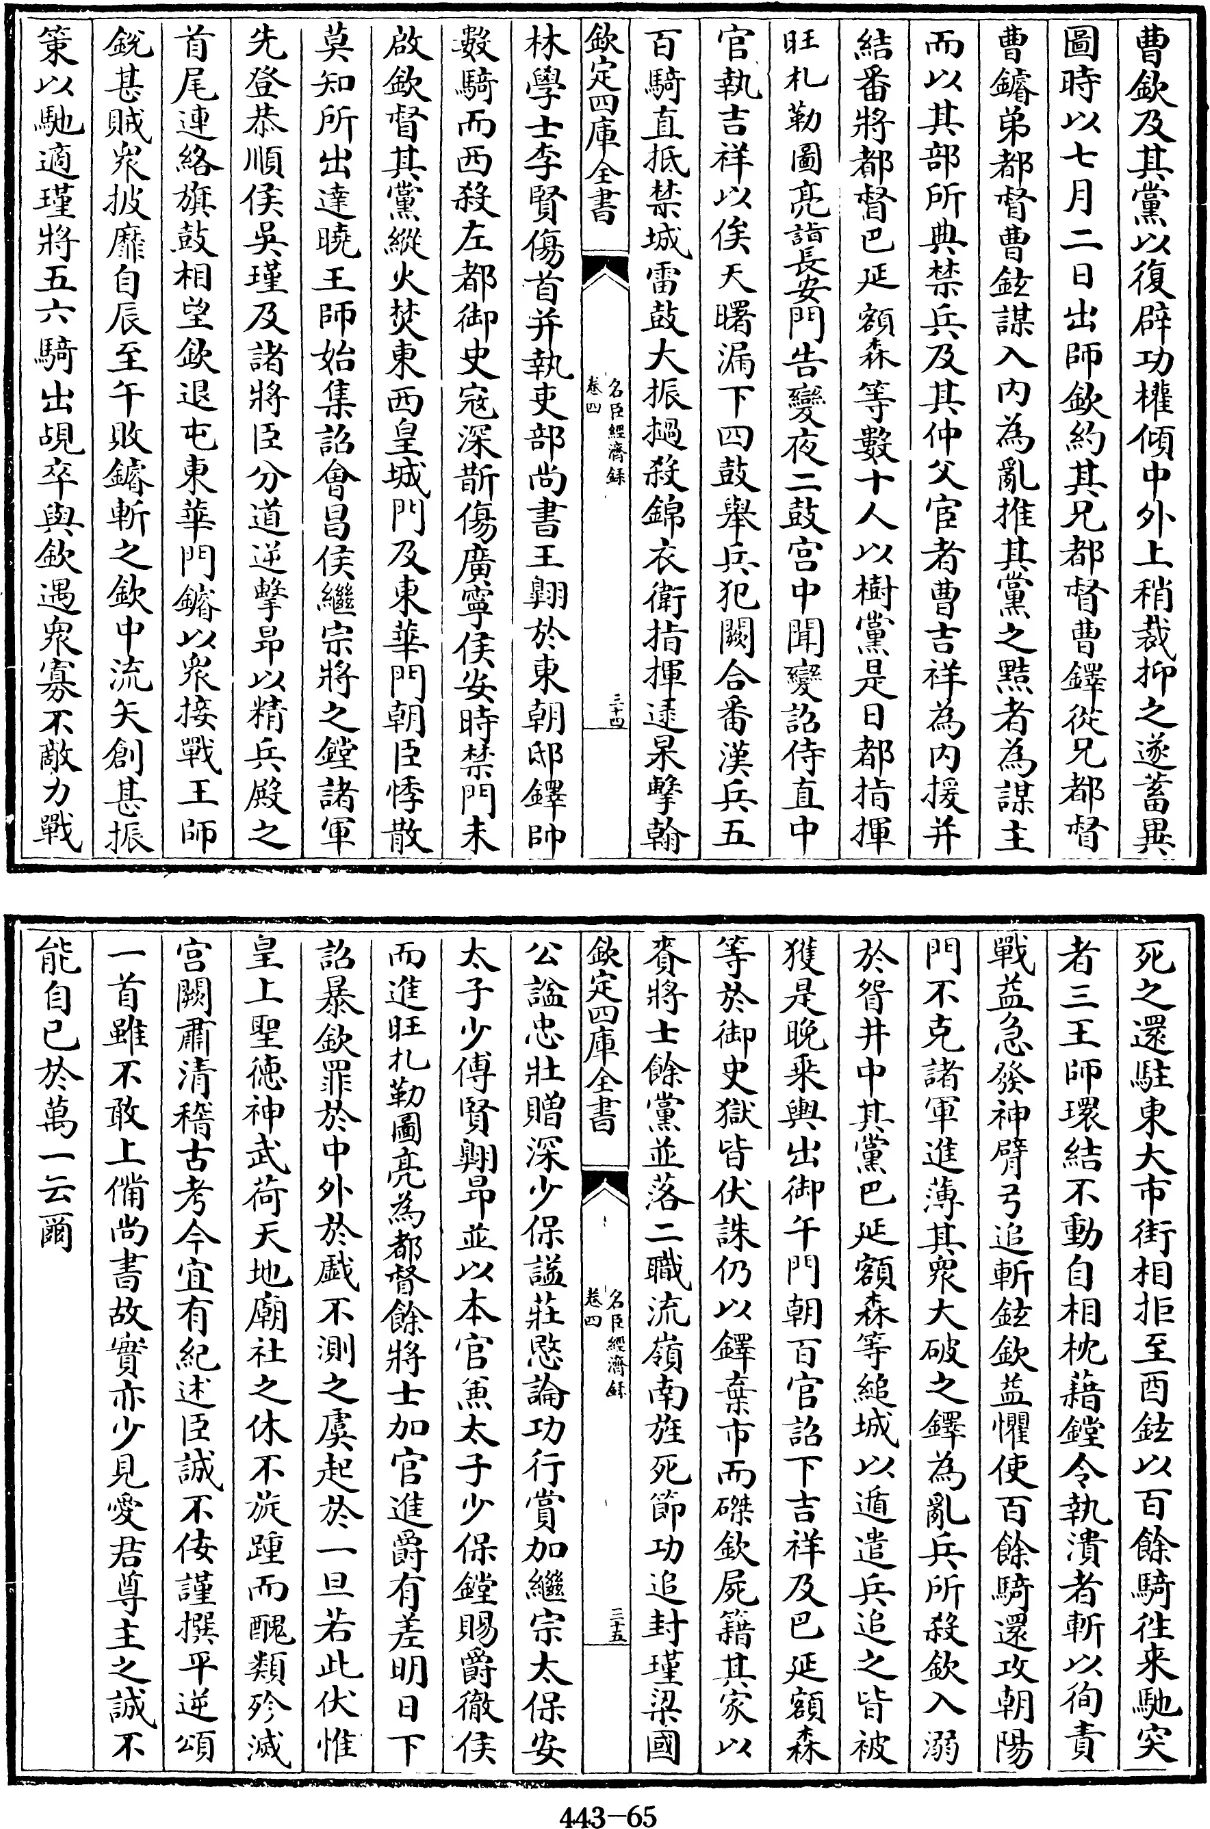 曹欽及其黨以復辟功權傾中外上稍裁抑之遂蓄異
圖時以七月二日出師欽約其兄都督曹鐸從兄都督
曹𨱔弟都督曹鉉謀入内為亂推其黨之黠者為謀主
而以其部所典禁兵及其仲父宦者曹吉祥為内援并
結番將都督巴延額森等數十人以樹黨是日都指揮
旺札勒圖亮詣長安門告變夜二鼓宫中聞變詔侍直中
官執吉祥以俟天曙漏下四鼓舉兵犯闕合番漢兵五
百騎直抵禁城雷鼓大振撾殺錦衣衛指揮逯杲擊翰
欽定四庫全書
名臣經濟録
卷四
三十四
林學士李賢傷首并執吏部尚書王翺於東朝邸鐸帥
數騎而西殺左都御史寇深斫傷廣寧侯安時禁門未
啟欽督其黨縱火焚東西皇城門及東華門朝臣悸散
莫知所出達曉王師始集詔會昌侯繼宗將之鏜諸軍
先登恭順侯吳瑾及諸將臣分道逆擊昻以精兵殿之
首尾連絡旗鼓相望欽退屯東華門𨱔以衆接戰王師
銳甚賊衆披靡自辰至午敗𨱔斬之欽中流矢創甚振
策以馳適瑾將五六騎出覘卒與欽遇衆寡不敵力戰
死之還駐東大市街相拒至酉鉉以百餘騎往来馳突
者三王師環結不動自相枕藉鏜令執潰者斬以徇責
戰益急發神臂弓追斬鉉欽益懼使百餘騎還攻朝陽
門不克諸軍進薄其衆大破之鐸為亂兵所殺欽入溺
於眢井中其黨巴延額森等縋城以遁遣兵追之皆被
獲是晚乘輿出御午門朝百官詔下吉祥及巴延額森
等於御史獄皆伏誅仍以鐸棄市而磔欽屍籍其家以
賚將士餘黨並落二職流嶺南旌死節功追封瑾梁國
欽定四庫全書
名臣經濟録
卷四
三十五
公諡忠壯贈深少保諡莊愍論功行賞加繼宗太保安
太子少傅賢翺昻並以本官兼太子少保鏜賜爵徹侯
而進旺札勒圖亮為都督餘將士加官進爵有差明日下
詔暴欽罪於中外於戲不測之虞起於一旦若此伏惟
皇上聖德神武荷天地廟社之休不旋踵而醜類殄滅
宫闕肅清稽古考今宜有紀述臣誠不佞謹撰平逆頌
一首雖不敢上備尚書故實亦少見愛君尊主之誠不
能自已於萬一云爾
443-65